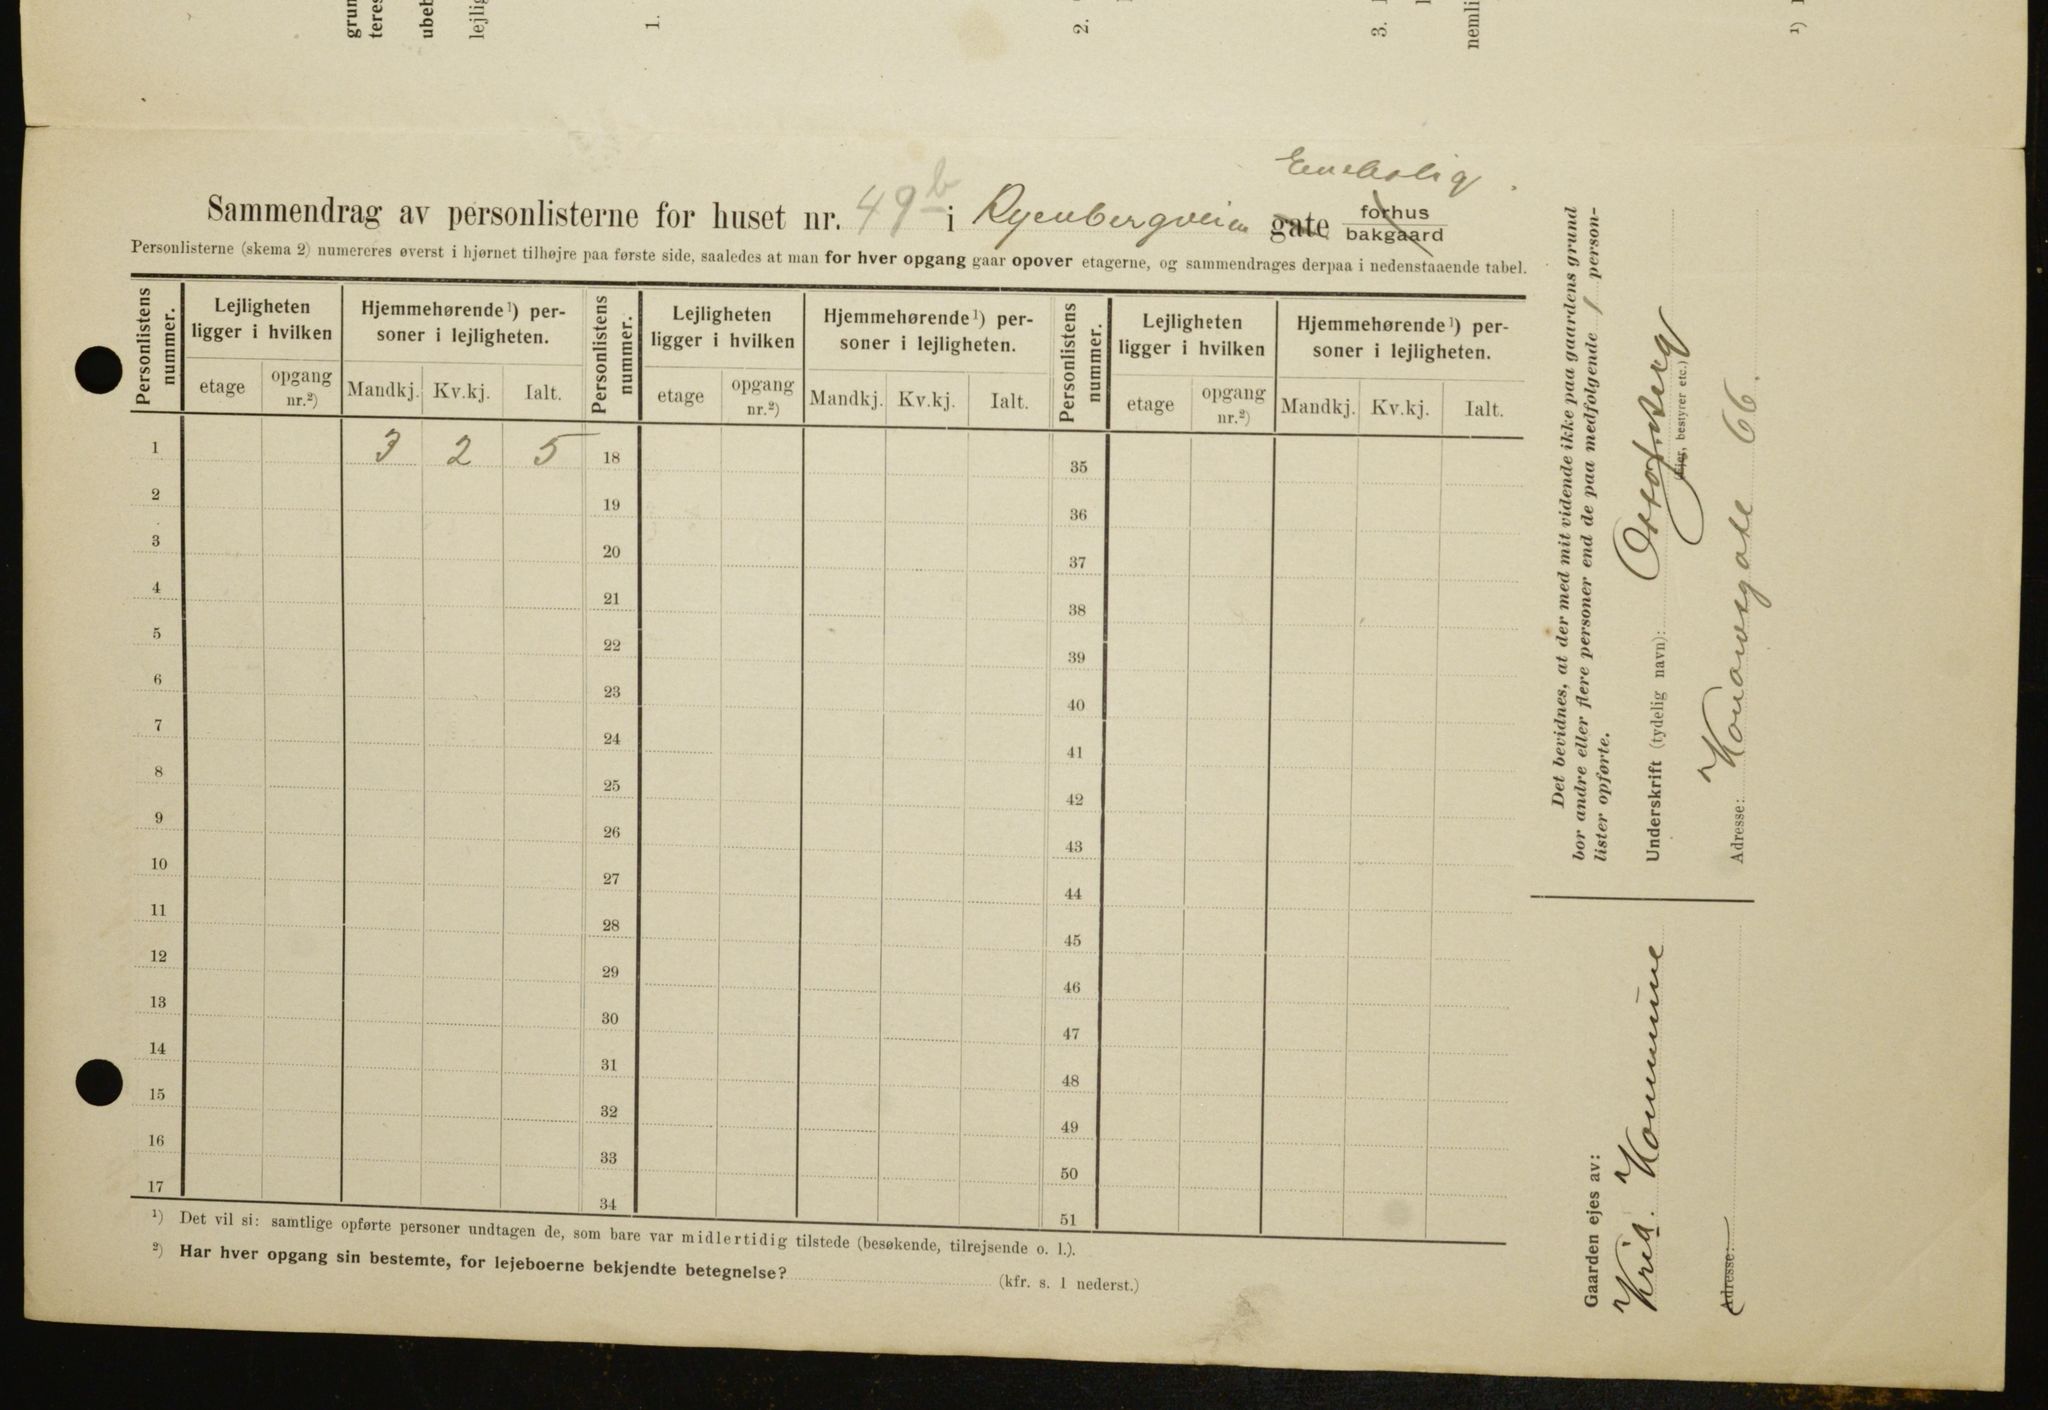 grun
teres
ubeb
lejlig
1.
2.
3.
nemli
¹)
Enebolig.
Sammendrag av personlisterne for huset nr. 49b i Ryenbergveien gate forhus bakgaard
Personlisterne (skema 2) numereres øverst i hjørnet tilhøjre paa første side, saaledes at man for hver opgang gaar opover etagerne, og sammendrages derpaa i nedenstaaende tabel.
Personlistens nummer. Lejligheten ligger i hvilken Hjemmehørende¹) personer i lejligheten. Personlistens nummer. Lejligheten ligger i hvilken Hjemmehørende¹) personer i lejligheten. Personlistens nummer. Lejligheten ligger i hvilken Hjemmehørende¹) personer i lejligheten.
etage opgang nr.²) Mandkj. Kv.kj. Ialt. etage opgang nr.²) Mandkj. Kv.kj. Ialt. etage opgang nr.²) Mandkj. Kv.kj. Ialt.
1 3 2 5 18 35
2 19 36
3 20 37
4 21 38
5 22 39
6 23 40
7 24 41
8 25 42
9 26 43
10 27 44
11 28 45
12 29 46
13 30 47
14 31 48
15 32 49
16 33 50
17 34 51
¹) Det vil si: samtlige opførte personer undtagen de, som bare var midlertidig tilstede (besøkende, tilrejsende o. l.).
²) Har hver opgang sin bestemte, for lejeboerne bekjendte betegnelse? (kfr. s. 1 nederst.)
Det bevidnes, at der med mit vidende ikke paa gaardens grund
bor andre eller flere personer end de paa medfølgende 1 person-
lister opførte.
Underskrift (tydelig navn):
(Eier, bestyrer etc.)
Adresse: Konowsgate 66.
Gaarden ejes av:
Kria. Kommune
Adresse: